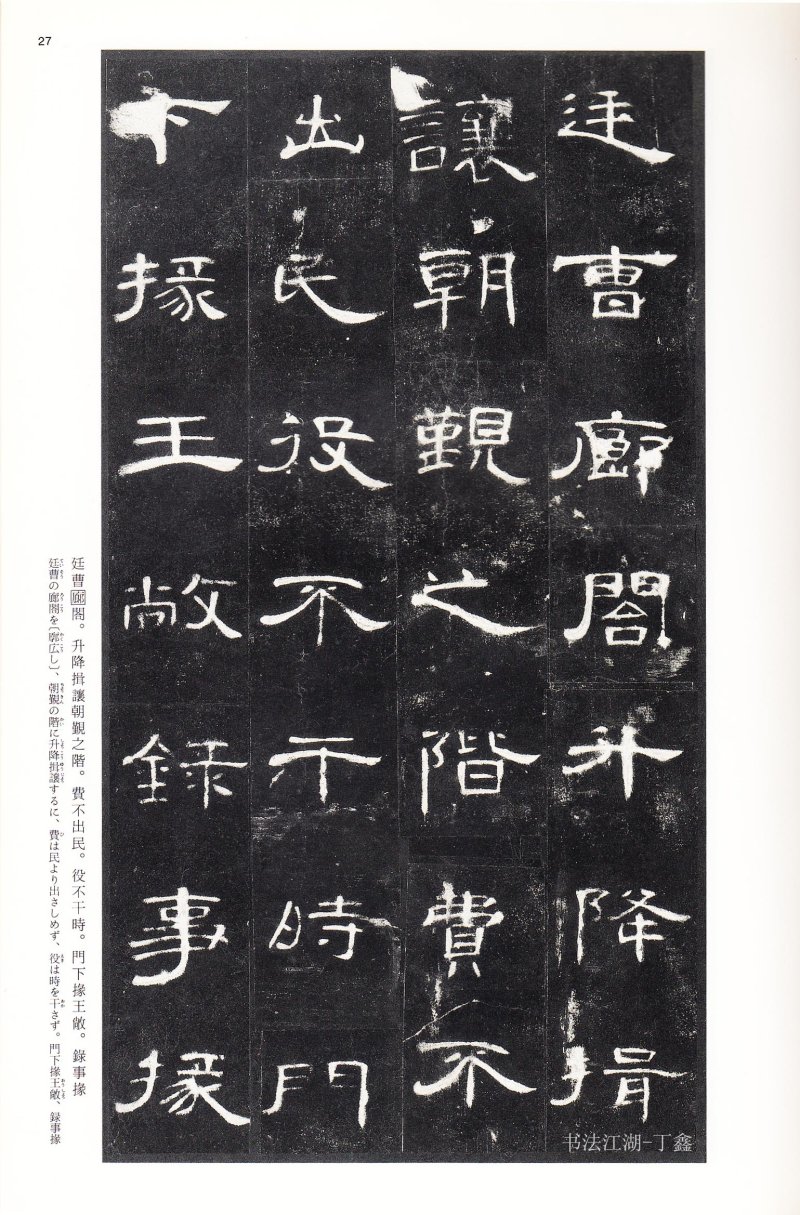 27
廷曹廊閣升降揖
讓朝覲之階費不
出民役不干時門
下掾王敞錄事掾
廷曹廊閣。升降揖讓朝覲之階。費不出民。役不干時。門下掾王敞。錄事掾
廷曹の廊閣を〔廓広し〕、朝覲の階に升降揖讓するに、費は民より出さしめず、役は時を干さず。門下掾王敞、録事掾
书法江湖-丁鑫